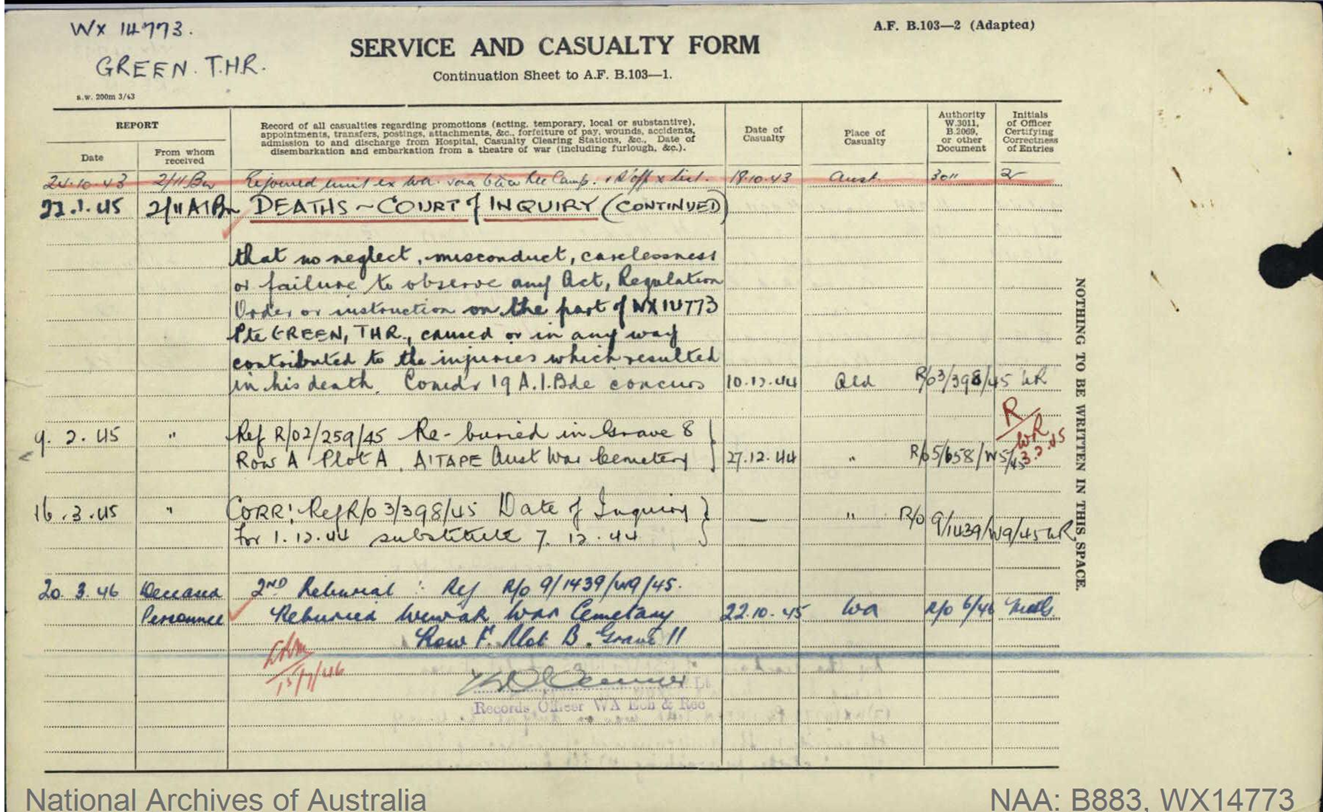 WX 14773.
GREEN. T.H.R.
A.F. B.103—2 (Adapted)
SERVICE AND CASUALTY FORM
Continuation Sheet to A.F. B.103—1.
s.w. 200m 3/43
REPORT
Date
From whom received
Record of all casualties regarding promotions (acting, temporary, local or substantive),
appointments, transfers, postings, attachments, &c., forfeiture of pay, wounds, accidents,
admission to and discharge from Hospital, Casualty Clearing Stations, &c., Date of
disembarkation and embarkation from a theatre of war (including furlough, &c.).
Date of Casualty
Place of Casualty
Authority W.3011, B.2069, or other Document
Initials of Officer Certifying Correctness of Entries
24.10.43 2/11 Bn Rejoined unit ex 18.10.43 Aust 3011
22.1.45 2/11 A I Bn DEATHS ~ COURT of INQUIRY (CONTINUED)
that no neglect, misconduct, carelessness
or failure to observe any Act, Regulation
Order or instruction on the part of WX14773
Pte GREEN, THR, caused or in any way
contributed to the injuries which resulted
in his death. Comdr 19 A.I.Bde concurs 10.12.44 Qld R/03/398/45 WR
R
WR
3.2.45
9.2.45 " Ref R/02/259/45 Re-buried in Grave 8
Row A Plot A, AITAPE Aust War Cemetery 27.12.44 " R/05/658/W5/45
16.3.45 " CORR: Ref R/03/398/45 Date of Inquiry
For 1.12.44 substitute 7.12.44 — " R/0 9/1439/W9/45 WR
20.3.46 Deceased Personnel 2ND Reburial : Ref R/o 9/1439/W9/45.
Reburied Wewak War Cemetary 22.10.45 WA R/o 6/46
Row F. Plot B. Grave 11
15/7/46
Records Officer WA Ech & Rec
NOTHING TO BE WRITTEN IN THIS SPACE.
National Archives of Australia
NAA: B883, WX14773